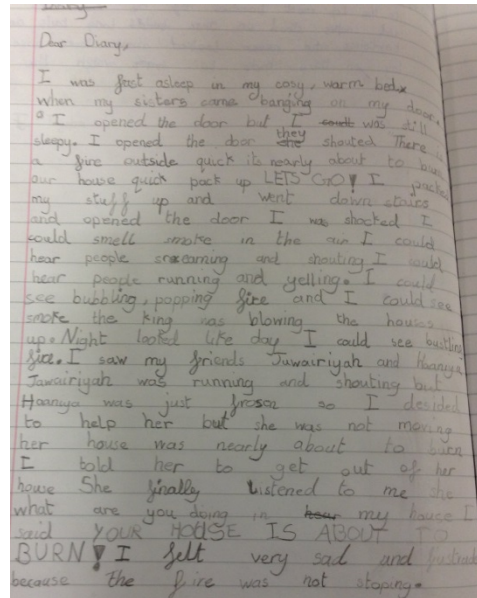 Diary
Dear Diary,
I was fast asleep in my cosy, warm bed
when my sisters came banging on my door.
I opened the door but I was still
sleepy. I opened the door they shouted There is
a fire outside quick its nearly about to burn
our house quick pack up LETS GO! I packed
my stuff up and went down stairs
and opened the door I was shocked I
could smell smoke in the air I could
hear people screaming and shouting I could
hear people running and yelling. I could
see bubbling, popping fire and I could see
smoke the king was blowing the houses
up. Night looked like day I could see bustling
fire. I saw my friends Juwairiyah and Haaniya
Juwairiyah was running and shouting but
Haaniya was just frosen so I decided
to help her but she was not moving
her house was nearly about to burn
I told her to get out of her
house She finally Listened to me she
what are you doing in my house I
said YOUR HOUSE IS ABOUT TO
BURN! I felt very sad and
because the fire was not stoping.